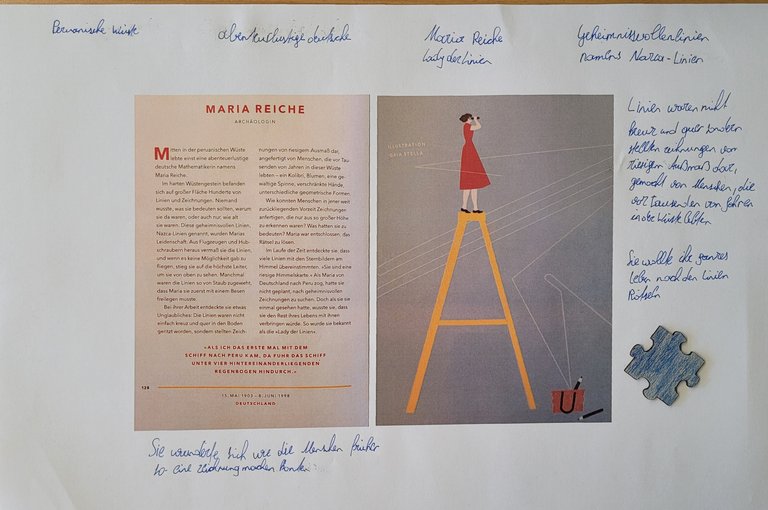 Peruanische Wüste
abenteuerlustige deutsche
Maria Reiche
Lady der Linien
Geheimnisvollen linien
namens Nazca-Linien
MARIA REICHE
ARCHÄOLOGIN
Mitten in der peruanischen Wüste
lebte einst eine abenteuerlustige
deutsche Mathematikerin namens
Maria Reiche.
Im harten Wüstengestein befanden
sich auf großer Fläche Hunderte von
Linien und Zeichnungen. Niemand
wusste, was sie bedeuten sollten, warum
sie da waren, oder auch nur, wie alt
sie waren. Diese geheimnisvollen Linien,
Nazca-Linien genannt, wurden Marias
Leidenschaft. Aus Flugzeugen und Hub-
schraubern heraus vermaß sie die Linien,
und wenn es keine Möglichkeit gab zu
fliegen, stieg sie auf die höchste Leiter,
um sie von oben zu sehen. Manchmal
waren die Linien so von Staub zugeweht,
dass Maria sie zuerst mit einem Besen
freilegen musste.
Bei ihrer Arbeit entdeckte sie etwas
Unglaubliches: Die Linien waren nicht
einfach kreuz und quer in den Boden
geritzt worden, sondern stellten Zeich-
nungen von riesigem Ausmaß dar,
angefertigt von Menschen, die vor Tau-
senden von Jahren in dieser Wüste
lebten – ein Kolibri, Blumen, eine ge-
waltige Spinne, verschränkte Hände,
unterschiedliche geometrische Formen.
Wie konnten Menschen in jener weit
zurückliegenden Vorzeit Zeichnungen
anfertigen, die nur aus so großer Höhe
zu erkennen waren? Was hatten sie zu
bedeuten? Maria war entschlossen, das
Rätsel zu lösen.
Im Laufe der Zeit entdeckte sie, dass
viele Linien mit den Sternbildern am
Himmel übereinstimmten. »Sie sind eine
riesige Himmelskarte.« Als Maria von
Deutschland nach Peru zog, hatte sie
nicht geplant, nach geheimnisvollen
Zeichnungen zu suchen. Doch als sie sie
einmal gesehen hatte, wusste sie, dass
sie den Rest ihres Lebens mit ihnen
verbringen würde. So wurde sie bekannt
als die »Lady der Linien«.
»ALS ICH DAS ERSTE MAL MIT DEM
SCHIFF NACH PERU KAM, DA FUHR DAS SCHIFF
UNTER VIER HINTEREINANDERLIEGENDEN
REGENBOGEN HINDURCH.«
128
15. MAI 1903 – 8. JUNI 1998
DEUTSCHLAND
ILLUSTRATION
GAIA STELLA
Linien waren nicht
kreuz und quer sondern
stellten zeichnungen von
riesigem Außmaß dar,
gemacht von Menschen, die
vor tausenden von Jahren
in der Wüste lebten
Sie wollte ihr ganzes
Leben nach den Linien
Rätseln
Sie wunderte sich wie die Menschen früher
so eine Zeichnung machen konten.